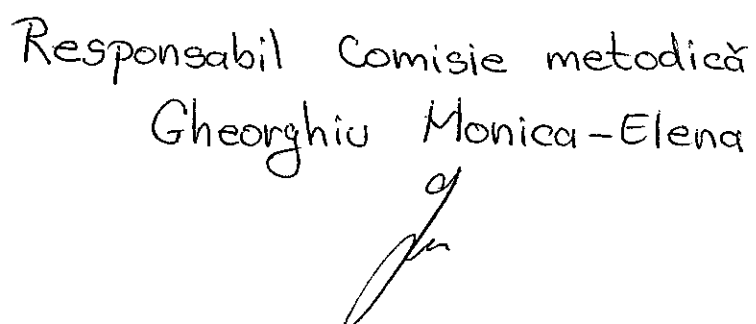 Responsabil Comisie metodică
Gheorghiu Monica-Elena